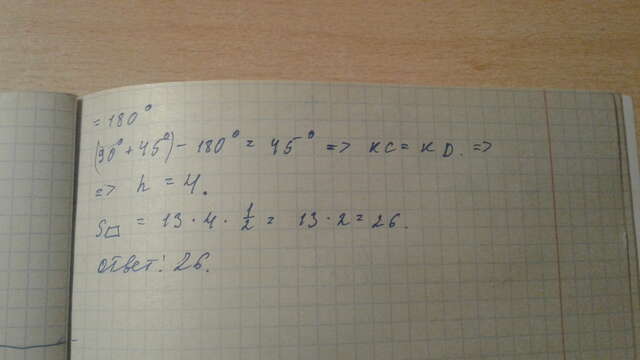 = 180°
(90° + 45°) - 180° = 45° => KC = KD. =>
=> h = 4.
S▱ = 13 · 4 · 1/2 = 13 · 2 = 26.
Ответ: 26.